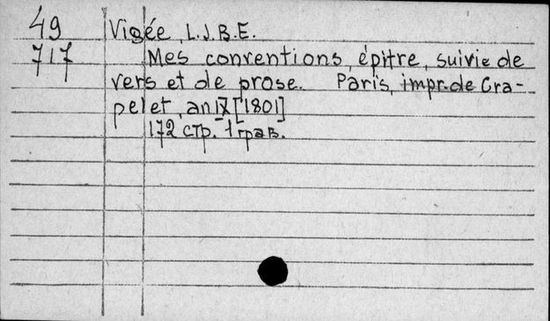 49 Vigée, L.J.B.E.
717 Mes conventions, épitre, suivie de
vers et de prose. Paris, impr. de Cra-
pelet, an IX [1801]
172 стр. 1 грав.